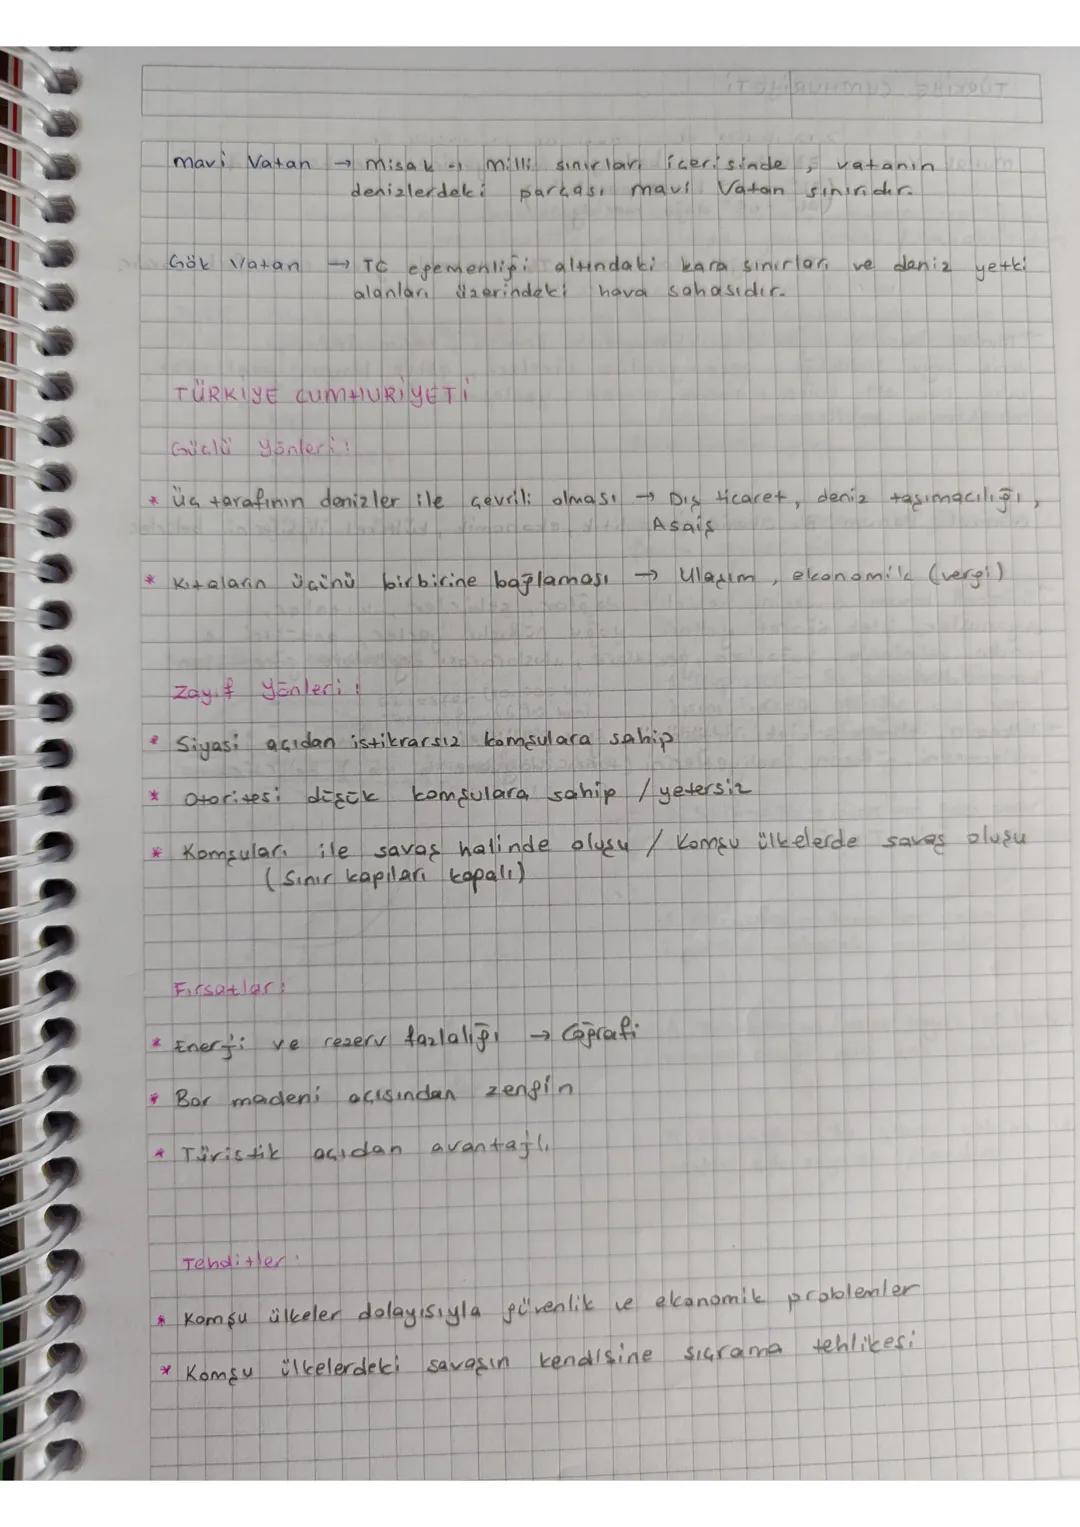 mavi Vatan → misak-ı milli sınırları içerisinde, vatanın
denizlerdeki parçası mavi Vatan sınırıdır.
Gök Vatan → TC egemenliği altındaki kara sınırları ve deniz yetki
alanları üzerindeki hava sahasıdır.
TÜRKİYE CUMHURİYETİ
Güçlü Yönleri:
* Üç tarafının denizler ile çevrili olması → Dış ticaret, deniz taşımacılığı,
Asaiş
* Kıtaların üçünü birbirine bağlaması → Ulaşım, ekonomik (vergi)
Zayıf Yönleri:
* Siyasi açıdan istikrarsız komşulara sahip
* Otoritesi düşük komşulara sahip / yetersiz
* Komşuları ile savaş halinde oluşu / Komşu ülkelerde savaş oluşu
(Sınır kapıları kapalı)
Fırsatlar:
* Enerji ve rezerv fazlalığı → Coğrafi
* Bor madeni açısından zengin
* Türistik açıdan avantajlı
Tehditler:
* Komşu ülkeler dolayısıyla güvenlik ve ekonomik problemler
* Komşu ülkelerdeki savaşın kendisine sıçrama tehlikesi